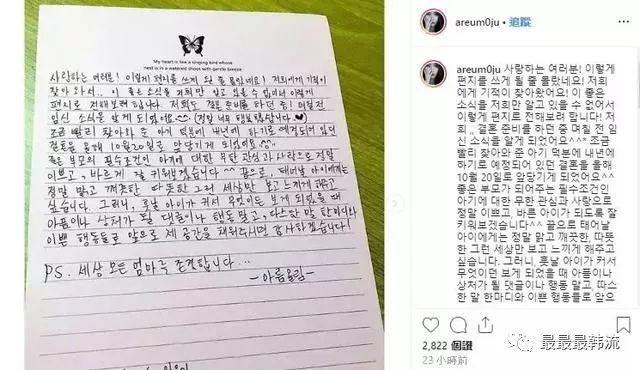 My heart is like a singing bird whose
nest is in a watered shoot with gentle breeze
사랑하는 여러분! 이렇게 편지를 쓰게 될 줄 몰랐네요! 저희에게 기적이
찾아와서.. 이 좋은 소식을 저희만 알고 있을 수 없어서 이렇게
편지로 전해보려 합니다! 저희는 결혼 준비를 하던 중! 며칠전
임신 소식을 알게 되었어요^^
조금 빨리 찾아와 준 아기 덕분에 내년에 하기로 예정되어 있던
결혼을 올해 10월20일로 앞당기게 되었어요^^
좋은 부모의 필수조건인 아가에 대한 무한 관심과 사랑으로 정말
이쁘고.. 바르게 잘 키워보겠습니다^^ 끝으로, 태어날 아이에게는
정말 맑고 깨끗한 따뜻한 그런 세상만 보고 느끼게 해주고
싶습니다. 그러니, 훗날 아이가 커서 무엇이든 보게 되었을 때
아픔이나 상처가 될 댓글이나 행동 말고, 따스한 말 한마디와
이쁜 행동들로 앞으로 제 공간을 채워주시면 감사하겠습니다!
PS. 세상 모든 엄마를 존경합니다...
-아름올림-
areum0ju • 追蹤
areum0ju 사랑하는 여러분! 이렇게
편지를 쓰게 될 줄 몰랐네요! 저희
에게 기적이 찾아왔어요! 이 좋은
소식을 저희만 알고 있을 수 없어서
이렇게 편지로 전해보려 합니다! 저
희.. 결혼 준비를 하던 중 며칠 전 임
신 소식을 알게 되었어요^^* 조금
빨리 찾아와 준 아기 덕분에 내년에
하기로 예정되어 있던 결혼을 올해
10월 20일로 앞당기게 되었어요^^
좋은 부모가 되어주는 필수조건인
아기에 대한 무한 관심과 사랑으로
정말 이쁘고, 바른 아이가 되도록 잘
키워보겠습니다^^ 끝으로 태어날
아이에게는 정말 맑고 깨끗한, 따뜻
한 그런 세상만 보고 느끼게 해주고
싶습니다. 그러니, 훗날 아이가 커서
무엇이던 보게 되었을 때 아픔이나
상처가 될 댓글이나 행동 말고, 따스
한 말 한마디와 이쁜 행동들로 앞으
2,822 個讚
23 小時前
最最最韩流